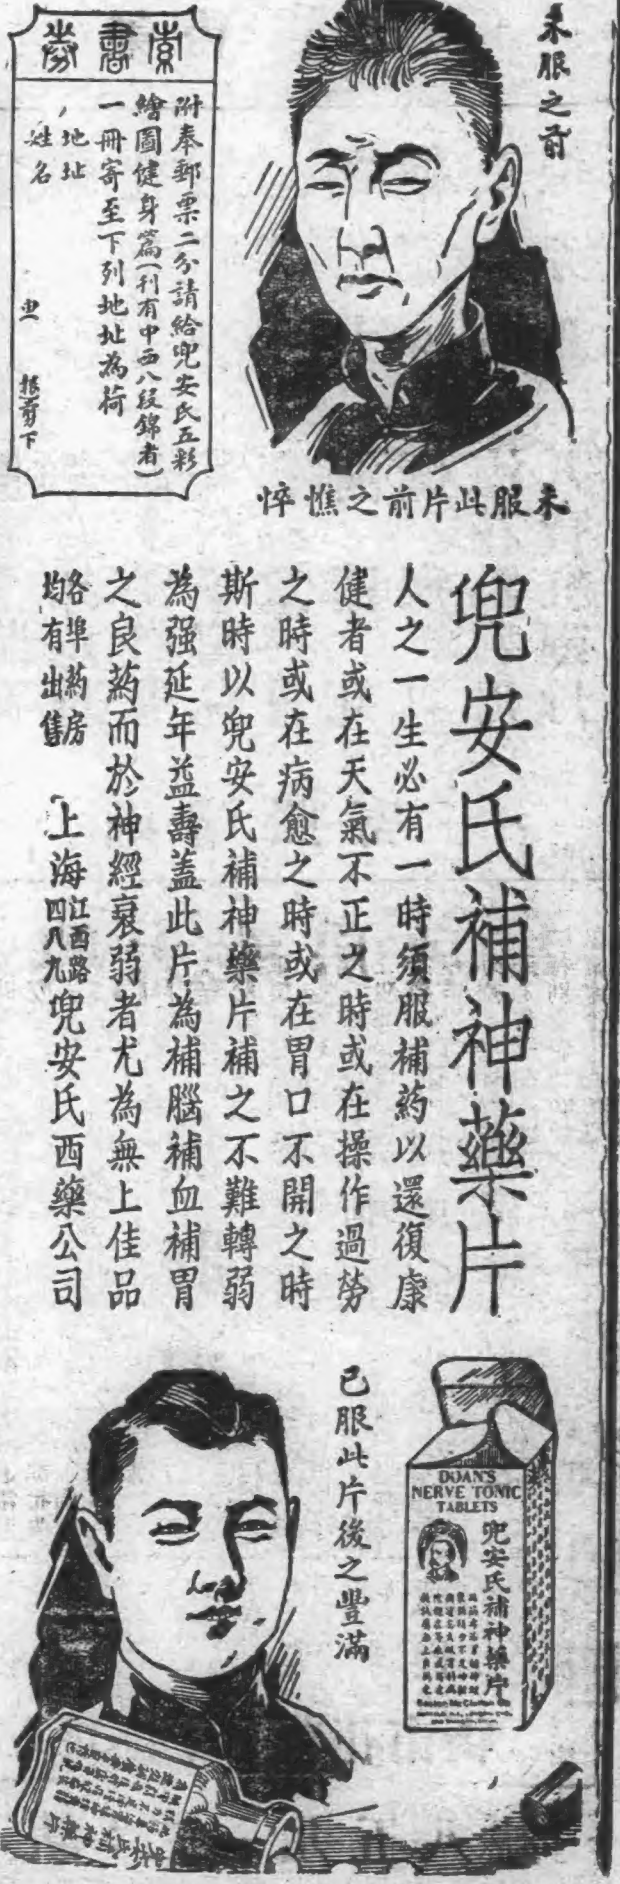 未服之前
未服此片前之憔悴
索書券
附奉郵票二分請給兜安氏五彩
繪圖健身篇(刊有中西八段錦者)
一冊寄至下列地址為荷
地址
姓名
兜安氏補神藥片
人之一生必有一時須服補葯以還復康
健者或在天氣不正之時或在操作過勞
之時或在病愈之時或在胃口不開之時
斯時以兜安氏補神藥片補之不難轉弱
為强延年益壽蓋此片為補腦補血補胃
之良葯而於神經衰弱者尤為無上佳品
各埠葯房
均有出售
上海江西路四八九兜安氏西藥公司
已服此片後之豐滿
DOAN'S
NERVE TONIC
TABLETS
兜安氏補神藥片